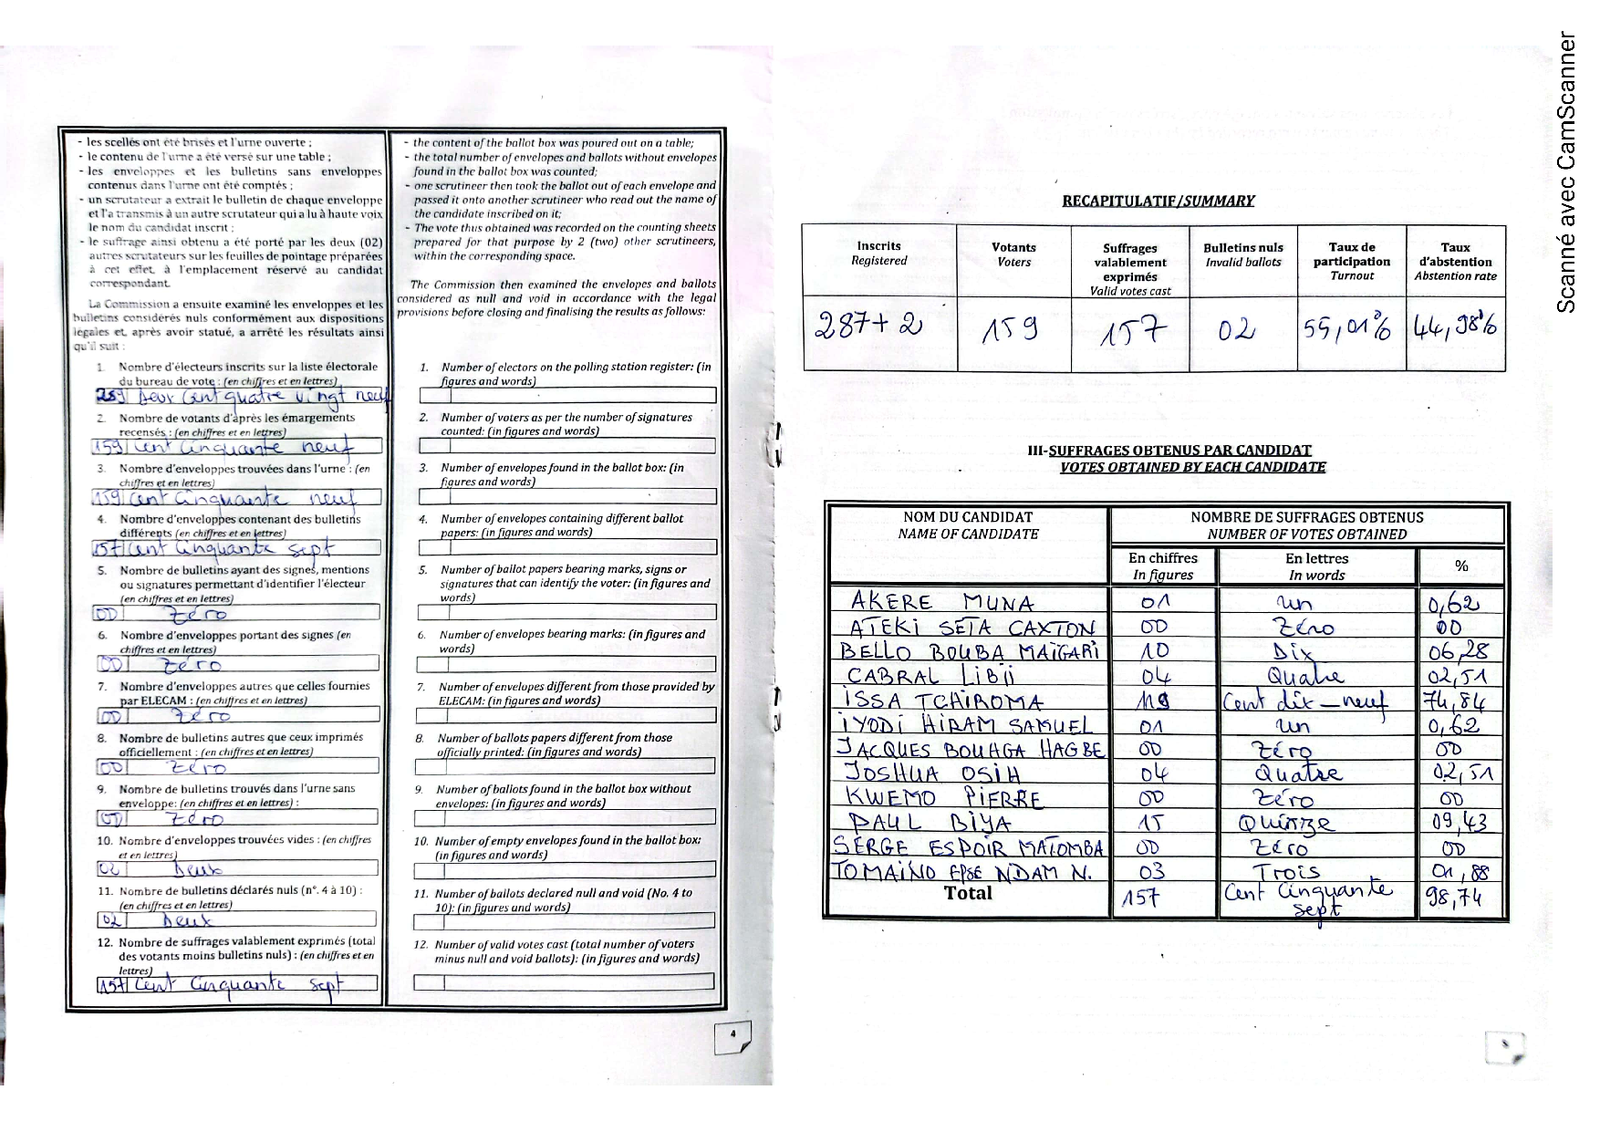 Scanné avec CamScanner
- les scellés ont été brisés et l'urne ouverte ;
- le contenu de l'urne a été versé sur une table ;
- les enveloppes et les bulletins sans enveloppes
contenus dans l'urne ont été comptés ;
- un scrutateur a extrait le bulletin de chaque enveloppe
et l'a transmis à un autre scrutateur qui a lu à haute voix
le nom du candidat inscrit ;
- le suffrage ainsi obtenu a été porté par les deux (02)
autres scrutateurs sur les feuilles de pointage préparées
à cet effet, à l'emplacement réservé au candidat
correspondant.
La Commission a ensuite examiné les enveloppes et les
bulletins considérés nuls conformément aux dispositions
légales et, après avoir statué, a arrêté les résultats ainsi
qu'il suit :
1. Nombre d'électeurs inscrits sur la liste électorale
du bureau de vote : (en chiffres et en lettres)
289 Deux Cent quatre vingt neuf
2. Nombre de votants d'après les émargements
recensés : (en chiffres et en lettres)
159 Cent Cinquante neuf
3. Nombre d'enveloppes trouvées dans l'urne : (en
chiffres et en lettres)
159 Cent Cinquante neuf
4. Nombre d'enveloppes contenant des bulletins
différents (en chiffres et en lettres)
157 Cent Cinquante sept
5. Nombre de bulletins ayant des signes, mentions
ou signatures permettant d'identifier l'électeur
(en chiffres et en lettres)
00 Zéro
6. Nombre d'enveloppes portant des signes (en
chiffres et en lettres)
00 Zéro
7. Nombre d'enveloppes autres que celles fournies
par ELECAM : (en chiffres et en lettres)
00 Zéro
8. Nombre de bulletins autres que ceux imprimés
officiellement : (en chiffres et en lettres)
00 Zéro
9. Nombre de bulletins trouvés dans l'urne sans
enveloppe: (en chiffres et en lettres) :
00 Zéro
10. Nombre d'enveloppes trouvées vides : (en chiffres
et en lettres)
02 Deux
11. Nombre de bulletins déclarés nuls (n°. 4 à 10) :
(en chiffres et en lettres)
02 Deux
12. Nombre de suffrages valablement exprimés (total
des votants moins bulletins nuls) : (en chiffres et en
lettres)
157 Cent Cinquante sept
- the content of the ballot box was poured out on a table;
- the total number of envelopes and ballots without envelopes
found in the ballot box was counted;
- one scrutineer then took the ballot out of each envelope and
passed it onto another scrutineer who read out the name of
the candidate inscribed on it;
- The vote thus obtained was recorded on the counting sheets
prepared for that purpose by 2 (two) other scrutineers,
within the corresponding space.
The Commission then examined the envelopes and ballots
considered as null and void in accordance with the legal
provisions before closing and finalising the results as follows:
1. Number of electors on the polling station register: (in
figures and words)
2. Number of voters as per the number of signatures
counted: (in figures and words)
3. Number of envelopes found in the ballot box: (in
figures and words)
4. Number of envelopes containing different ballot
papers: (in figures and words)
5. Number of ballot papers bearing marks, signs or
signatures that can identify the voter: (in figures and
words)
6. Number of envelopes bearing marks: (in figures and
words)
7. Number of envelopes different from those provided by
ELECAM: (in figures and words)
8. Number of ballots papers different from those
officially printed: (in figures and words)
9. Number of ballots found in the ballot box without
envelopes: (in figures and words)
10. Number of empty envelopes found in the ballot box:
(in figures and words)
11. Number of ballots declared null and void (No. 4 to
10): (in figures and words)
12. Number of valid votes cast (total number of voters
minus null and void ballots): (in figures and words)
4
RECAPITULATIF/SUMMARY
Inscrits Registered | Votants Voters | Suffrages valablement exprimés Valid votes cast | Bulletins nuls Invalid ballots | Taux de participation Turnout | Taux d'abstention Abstention rate
287+2 159 157 02 55,01% 44,98%
III-SUFFRAGES OBTENUS PAR CANDIDAT
VOTES OBTAINED BY EACH CANDIDATE
NOM DU CANDIDAT NOMBRE DE SUFFRAGES OBTENUS
NAME OF CANDIDATE NUMBER OF VOTES OBTAINED
En chiffres En lettres %
In figures In words
AKERE MUNA 01 un 0,62
ATEKI SETA CAXTON 00 Zéro 00
BELLO BOUBA MAÏGARI 10 Dix 06,28
CABRAL LIBII 04 Quatre 02,51
ISSA TCHIROMA 119 Cent dix-neuf 74,84
IYODI HIRAM SAMUEL 01 un 0,62
JACQUES BOUHGA HAGBE 00 Zéro 00
JOSHUA OSIH 04 Quatre 02,51
KWEMO PIERRE 00 Zéro 00
PAUL BIYA 15 Quinze 09,43
SERGE ESPOIR MATOMBA 00 Zéro 00
TOMAINO EPSE NDAM N. 03 Trois 01,88
Total 157 Cent Cinquante sept 98,74